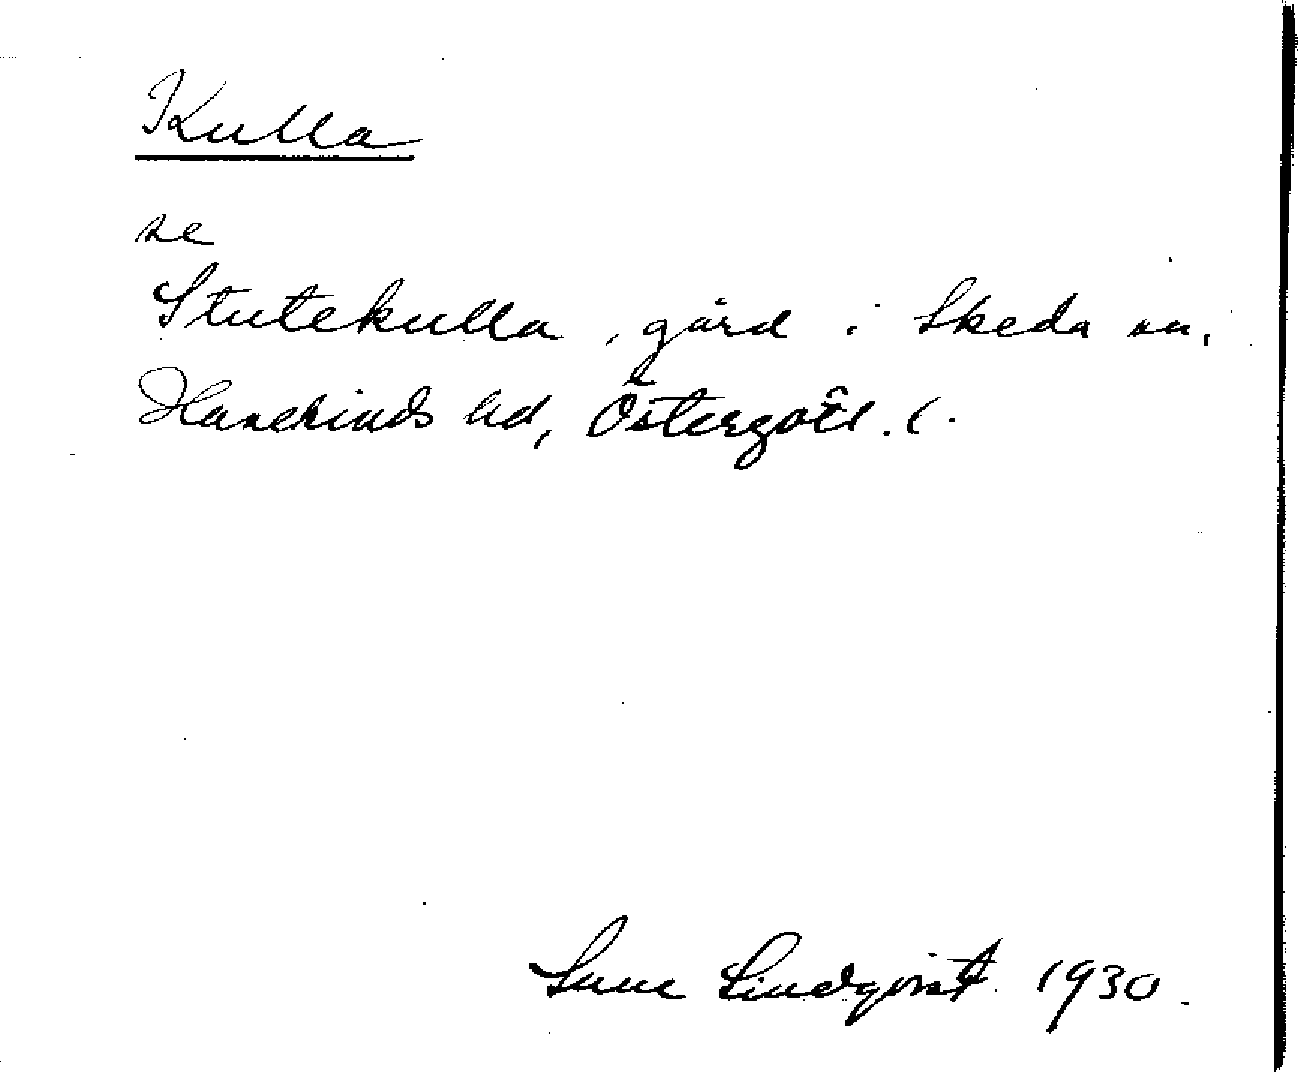 Kulla
se
Stutekulla, gård i Skeda sn,
Hanekinds hd, Östergötl. l.
Sune Lindqvist 1930.